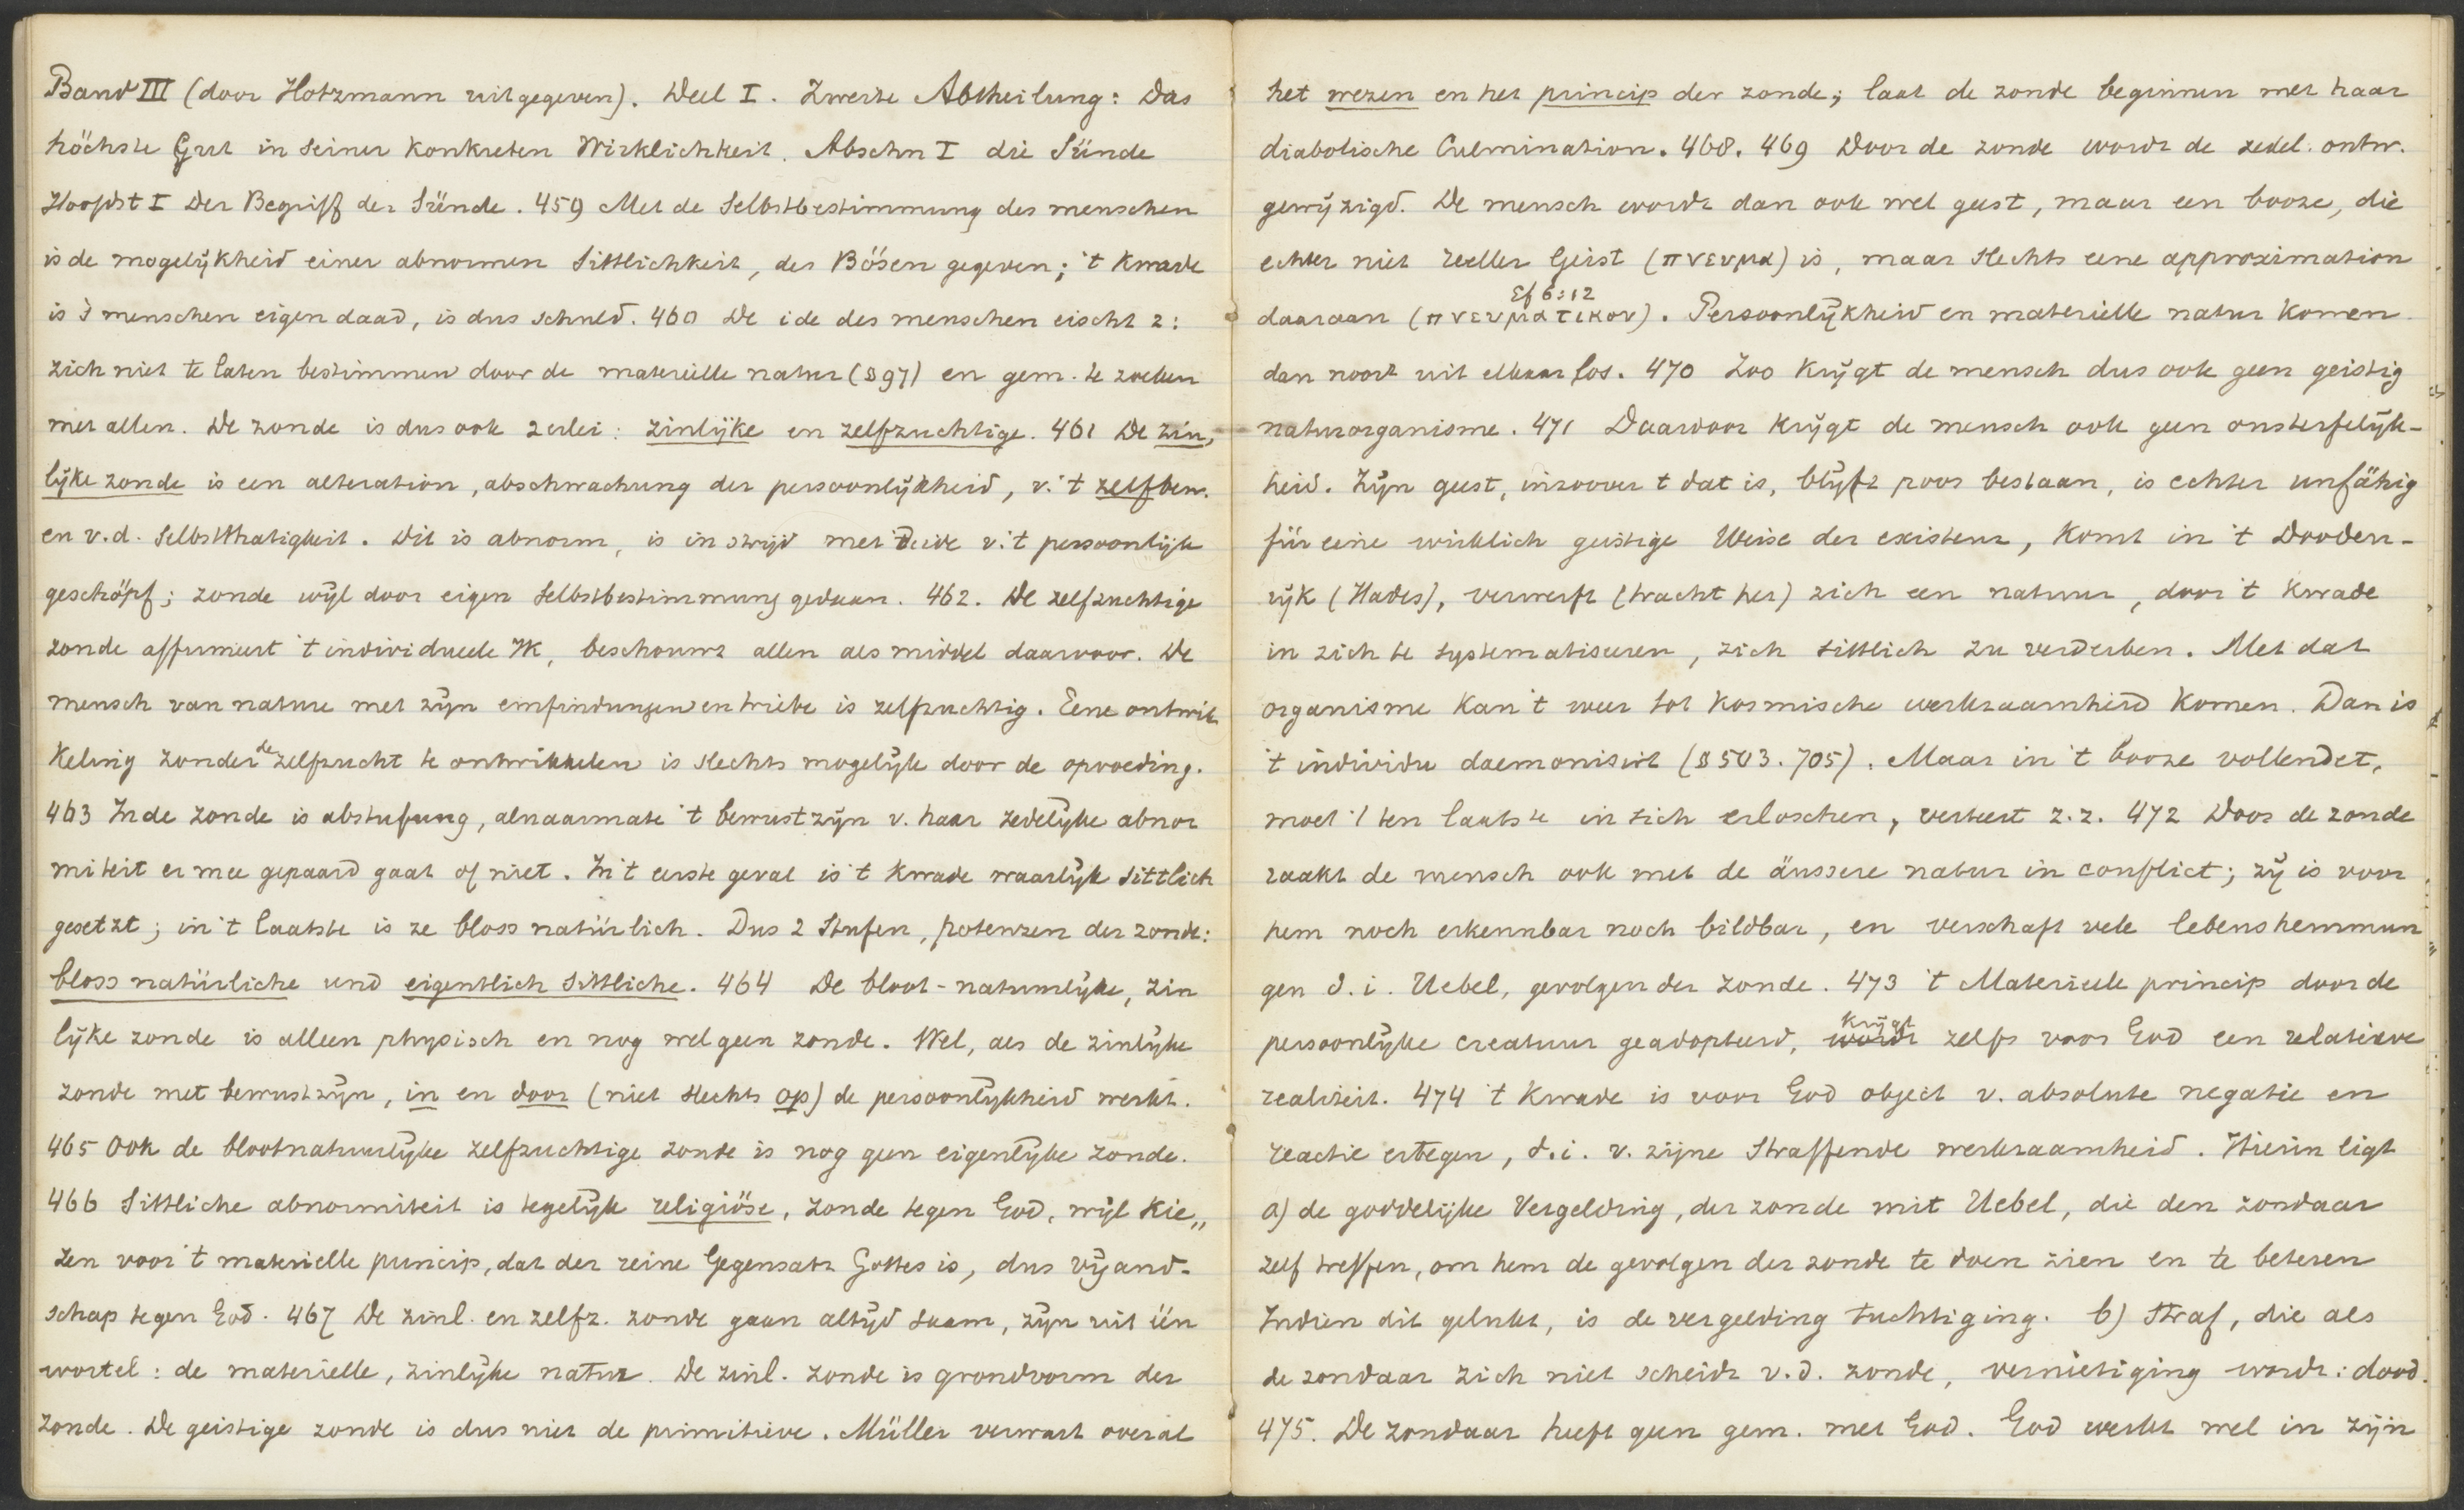 Band III (door Hotzmann uitgegeven). Deel I. Zweite Abtheilung: Das
höchste Gut in seiner konkreten Wirklichkeit. Abschn I die Sünde
Hoofdst I Der Begriff der Sünde. 459 Met de Selbstbestimmung des menschen
is de mogelijkheid einer abnormen Sittlichkeit, des Bösen gegeven; 't kwade
is 's menschen eigen daad, is dus schuld. 460 De ide des menschen eischt 2:
zich niet te laten bestimmen door de materiëlle natur (§ 97) en gem. te zoeken
met allen. De zonde is dus ook 2erlei: zinlijke en zelfzuchtige. 461 De zin,
lijke zonde is een alteration, abschwachung der persoonlijkheid, v. 't zelfbew.
en v.d. Selbstthatigkeit. Dit is abnorm, is in strijd met d'ide v. 't persoonlijk
geschöpf; zonde wijl door eigen Selbstbestimmung gedaan. 462. De zelfzuchtige
zonde affirmeert 't individueele Ik, beschouwt allen als middel daarvoor. De
mensch van nature met zijn emfindungen en triebe is zelfzuchtig. Eene ontwik
keling zonder de zelfzucht te ontwikkelen is slechts mogelijk door de opvoeding.
463 In de zonde is abstufung, alnaarmate 't bewustzijn v. haar zedelijke abnor
miteit er mee gepaard gaat of niet. In 't eerste geval is 't kwade waarlijk sittlich
gesetzt; in 't laatste is ze bloss natürlich. Dus 2 Stufen, potenzen der zonde:
bloss natürliche und eigentlich sittliche. 464 De bloot-natuurlijke, zin
lijke zonde is alleen physisch en nog wel geen zonde. Wel, als de zinlijke
zonde met bewustzijn, in en door (niet slechts op) de persoonlijkheid werkt.
465 Ook de blootnatuurlijke zelfzuchtige zonde is nog geen eigenlijke zonde.
466 Sittliche abnormiteit is tegelijk religiöse, zonde tegen God, wijl kie„
zen voor 't materielle princip, dat der reine Gegensatz Gottes is, dus vijand-
schap tegen God. 467 De zinl. en zelfz. zonde gaan altijd saam, zijn uit één
wortel: de materielle, zinlijke natur. De zinl. zonde is grondvorm der
zonde. De geistige zonde is dus niet de primitieve. Müller verwart overal
het wezen en het princip der zonde; laat de zonde beginnen met haar
diabolische Culmination. 468. 469 Door de zonde wordt de zedel. ontw.
gewijzigd. De mensch wordt dan ook wel geest, maar een booze, die
echter niet reeller Geist (πνευμα) is, maar slechts eene approximation
Ef 6:12
daaraan (πνευματικον). Persoonlijkheid en materiëlle natur komen
dan nooit uit elkaar los. 470 Zoo krijgt de mensch dus ook geen geistig
naturorganisme. 471 Daardoor krijgt de mensch ook geen onsterfelijk-
heid. Zijn geest, inzoover 't dat is, blijft poos bestaan, is echter unfähig
für eine wirklich geistige Weise der existenz, komt in 't Dooden-
rijk (Hades), verwerft (tracht her) zich een natuur, door 't kwade
in zich te systematiseeren, zich sittlich zu verderben. Met dat
organisme kan 't weer tot kosmische werkzaamheid komen. Dan is
't individu daemonisirt (§ 503. 705). Maar in 't booze vollendet,
moet 't ten laatste in sich erloschen, verteert z.z. 472 Door de zonde
raakt de mensch ook met de äussere natur in conflict; zij is voor
hem noch erkennbar noch bildbar, en verschaft vele lebenshemmun
gen d.i. Uebel, gevolgen der zonde. 473 't Materieele princip door de
krijgt
persoonlijke creatuur geadopteerd, wordt zelfs voor God een relatieve
realiteit. 474 't Kwade is voor God object v. absolute negatie en
reactie ertegen, d.i. v. zijne straffende werkzaamheid. Hierin ligt
a) de goddelijke Vergelding, der zonde mit Uebel, die den zondaar
zelf treffen, om hem de gevolgen der zonde te doen zien en te beteren
Indien dit gelukt, is de vergelding tuchtiging. b) Straf, die als
de zondaar zich niet scheidt v.d. zonde, vernietiging wordt: dood.
475. De zondaar heeft geen gem. met God. God werkt wel in zijn